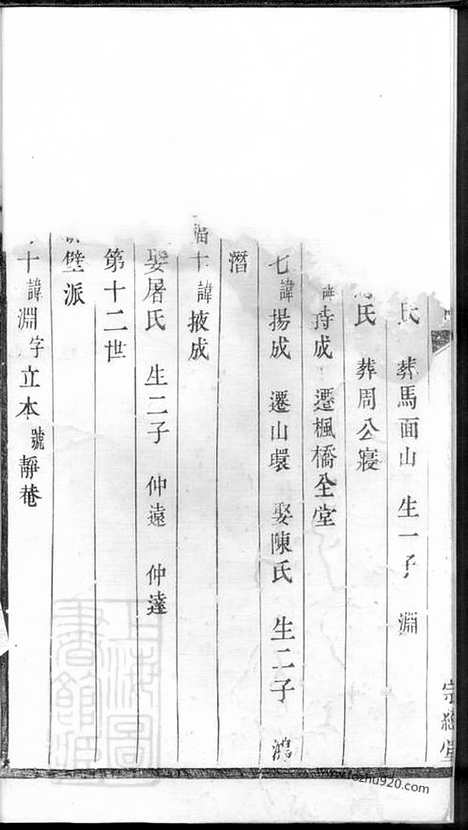 氏 葬馬面山 生一子 淵
氏 葬周公寢
諱持成 遷楓橋全堂
七諱揚成 遷山環 娶陳氏 生二子 鴻
潛
十諱掖成
娶屠氏 生二子 仲遠 仲達
第十二世
壁派
十諱淵字立本號靜菴
上海圖書館藏